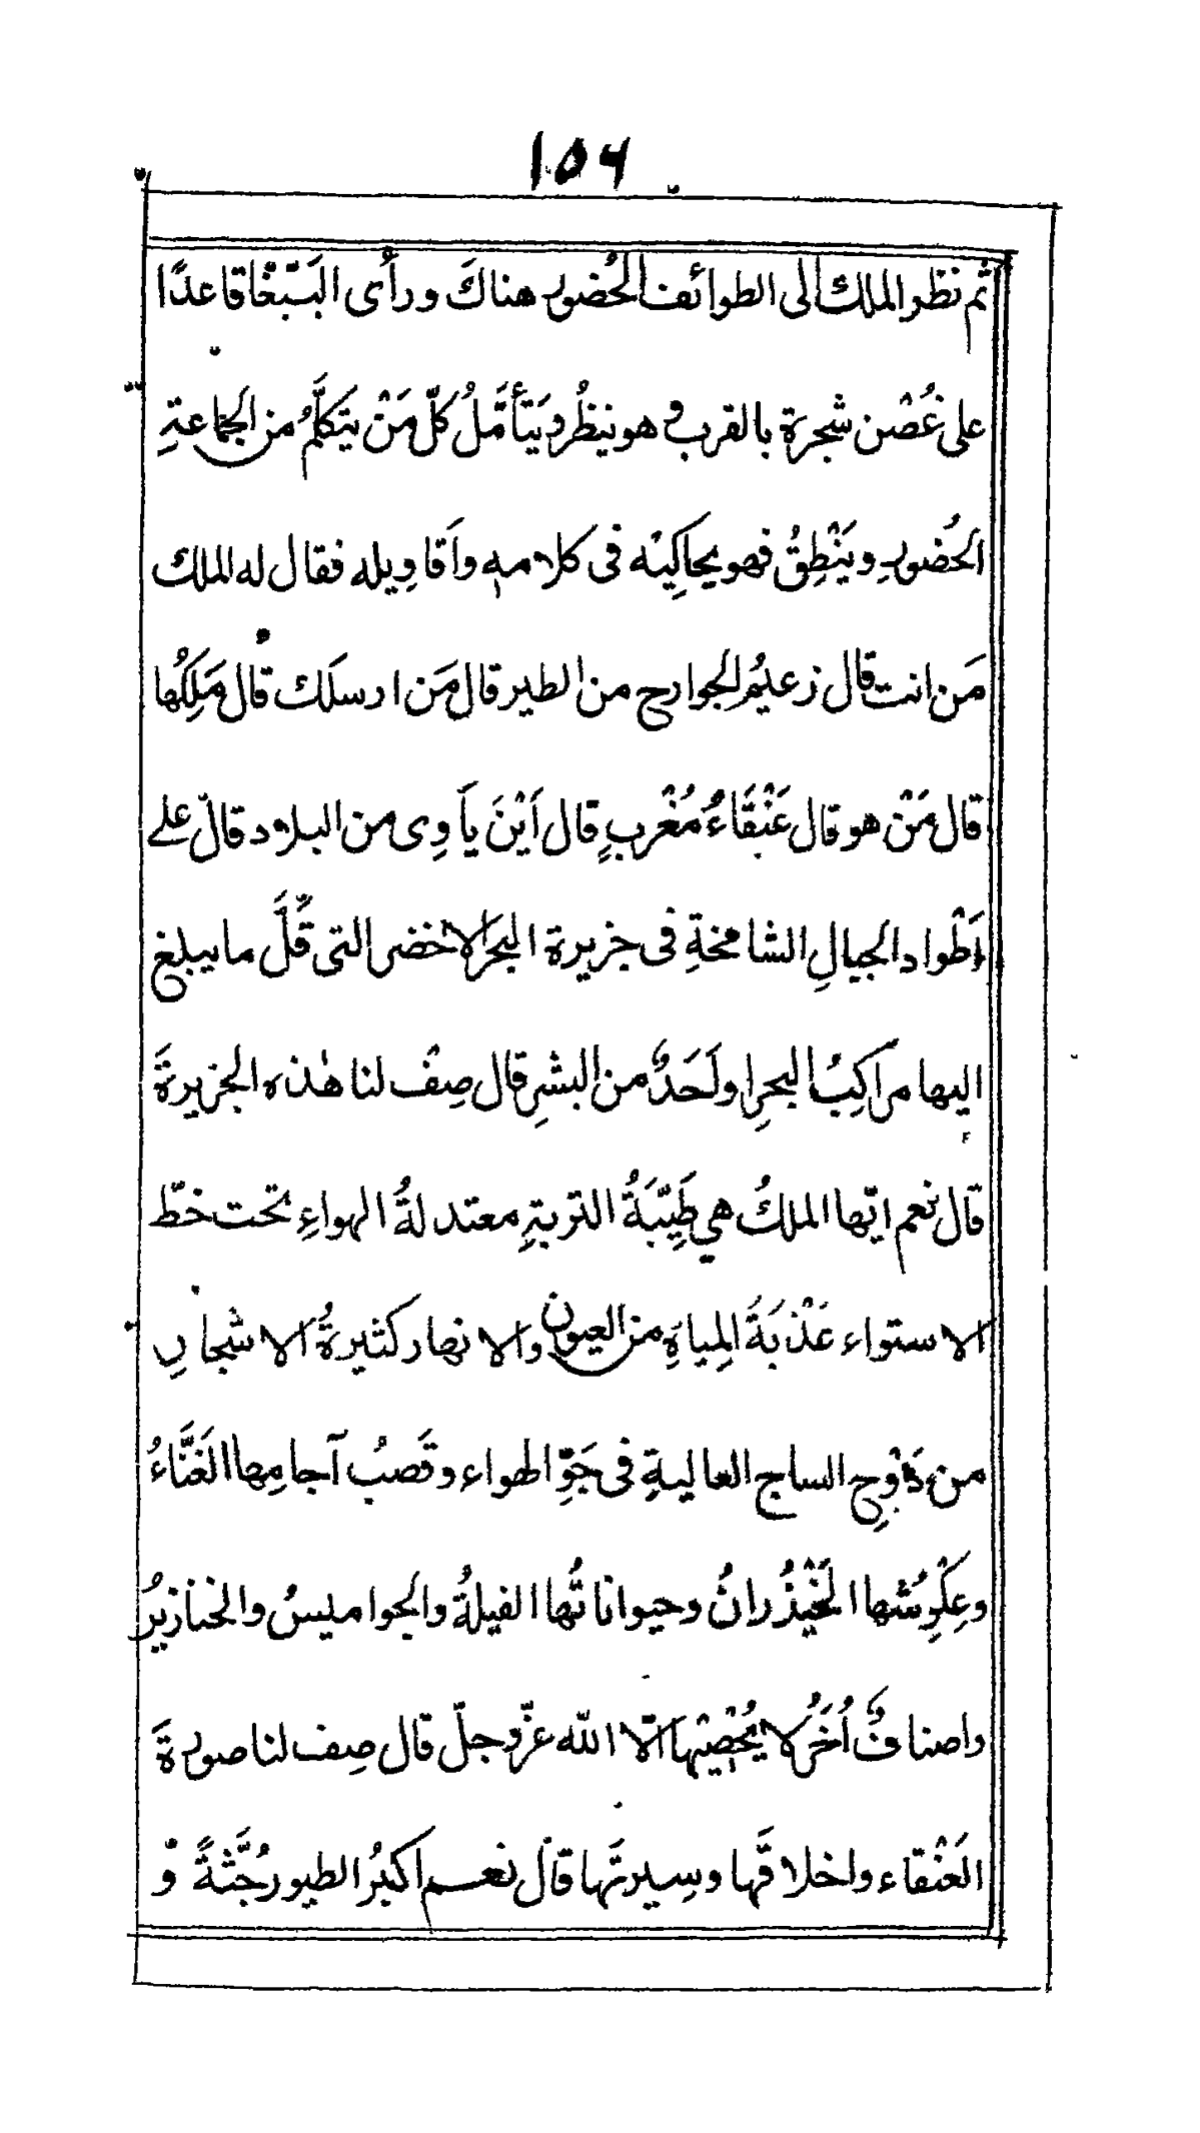 ١٥٦
ثم نظر الملك الى الطوائف الحُضور هناكَ ورأى البَبّغا قاعدًا
على غُصْن شجرة بالقرب وهو ينظُر ويَتأمَّلُ كلّ مَنْ يتكلَّمُ من الجماعةِ
الحُضورِ ويَنْطِقُ فهو يحاكِيْه فى كلامه واَقاوِيله فقال له الملك
مَن انت قال زعيمُ الجوارح من الطير قال مَن ارسلَك قال مَلِكُها
قال مَنْ هو قال عَنْقَاءُ مُغْرِبٍ قال اَيْنَ يأَوِى من البلاد قال على
اَطْواد الجبالِ الشامخةِ فى جزيرة البحر الاخضر التى قَلَّ ما يبلغ
اليها مراكِبُ البحرِ اولَحَدٌ من البشرِ قال صِفْ لنا هٰذه الجزيرةَ
قال نعم ايّها الملكُ هي طَيِّبَةُ التربةِ معتدلةُ الهواءِ تحت خطّ
الاستواء عَذْبَةَ المِياهَِ من العيون والانهار كثيرةُ الاشجارِ
من دَوْحِ الساج العاليةِ فى جَوِّ الهواء وقَصبُ آجامِها الغَنَّاءُ
وعِكْرِشُها الخَيْذُرانُ وحيواناتُها الفيلةُ والجواميسُ والخنازيرُ
واصنافٌ اُخَرُ لا يُحْصِيْها الّا الله عزّوجلّ قال صِف لنا صورةَ
العَنْقاء واخلاقَها وسِيرتَها قال نعم اكبرُ الطيور جُثَّةً وْ